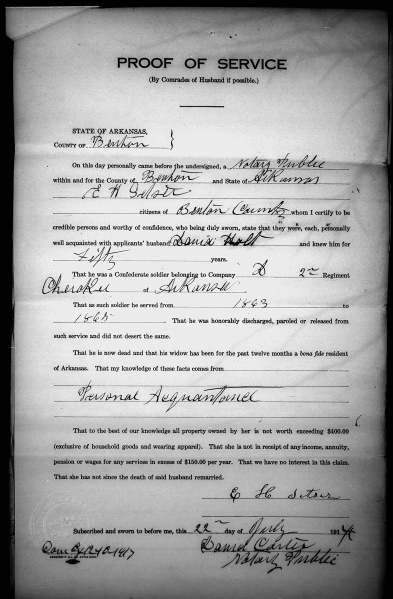 PROOF OF SERVICE
(By Comrades of Husband if possible.)
STATE OF ARKANSAS,
COUNTY OF Benton
On this day personally came before the undersigned, a Notary Public
within and for the County of Benton and State of Arkansas
E H
citizens of Benton County whom I certify to be
credible persons and worthy of confidence, who being duly sworn, state that they were, each, personally
well acquainted with applicants' husband David Holt and knew him for
fifty years.
That he was a Confederate soldier belonging to Company D 2nd Regiment
Cherokee of Arkansas
That as such soldier he served from 1863 to
1865 That he was honorably discharged, paroled or released from
such service and did not desert the same.
That he is now dead and that his widow has been for the past twelve months a bona fide resident
of Arkansas. That my knowledge of these facts comes from
Personal Acquantance
That to the best of our knowledge all property owned by her is not worth exceeding $400.00
(exclusive of household goods and wearing apparel). That she is not in receipt of any income, annuity,
pension or wages for any services in excess of $150.00 per year. That we have no interest in this claim.
That she has not since the death of said husband remarried.
E H Setser
Subscribed and sworn to before me, this 22 day of July 191
Daniel
Com Notary Public